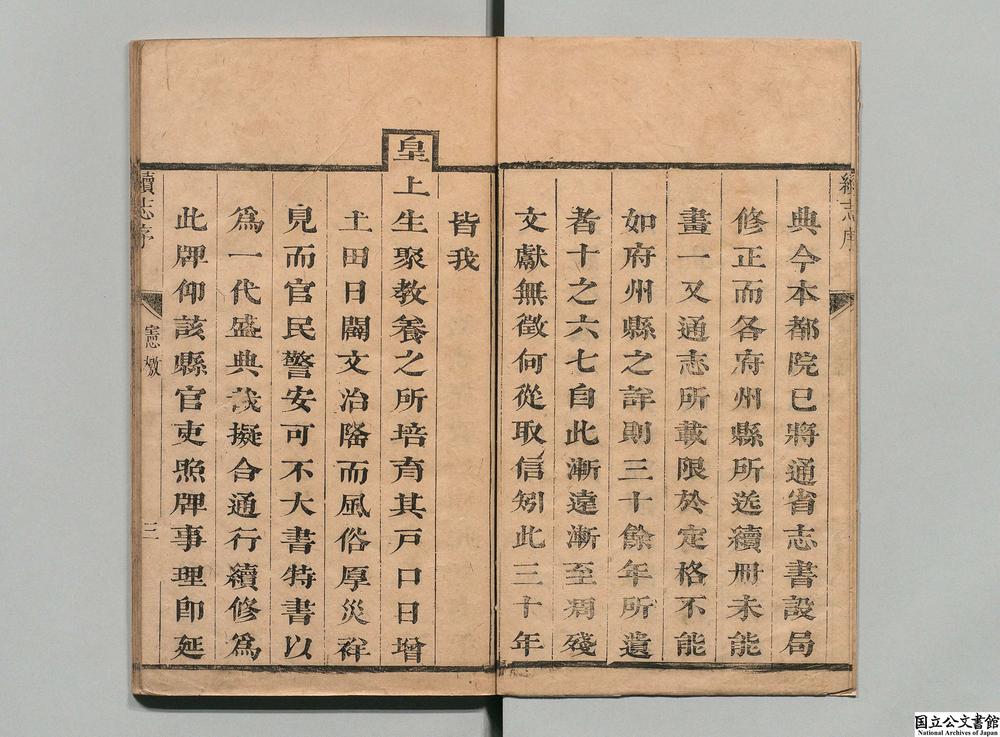 續志序
典今本都院已將通省志書設局
修正而各府州縣所送續冊未能
畫一又通志所載限於定格不能
如府州縣之詳則三十餘年所遺
者十之六七自此漸遠漸至凋殘
文獻無徵何從取信矧此三十年
皆我
皇上生聚教養之所培育其戶口日增
土田日闢文治隆而風俗厚災祥
見而官民警安可不大書特書以
爲一代盛典哉擬合通行續修爲
此牌仰該縣官吏照牌事理即延
續志序
憲檄
三
国立公文書館
National Archives of Japan